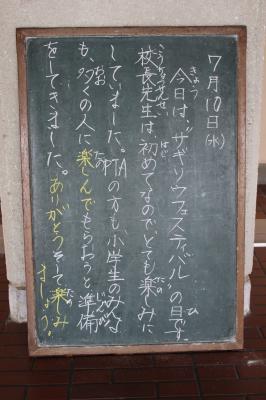 7月10日(水)
今日は、"サギソウフェスティバル"の日です。
校長先生は、初めてなので、とても楽しみに
していました。PTAの方も、小学生のみんな
も、多くの人に楽しんでもらおうと準備
をしてきました。ありがとう そして楽しみ
ましょう。